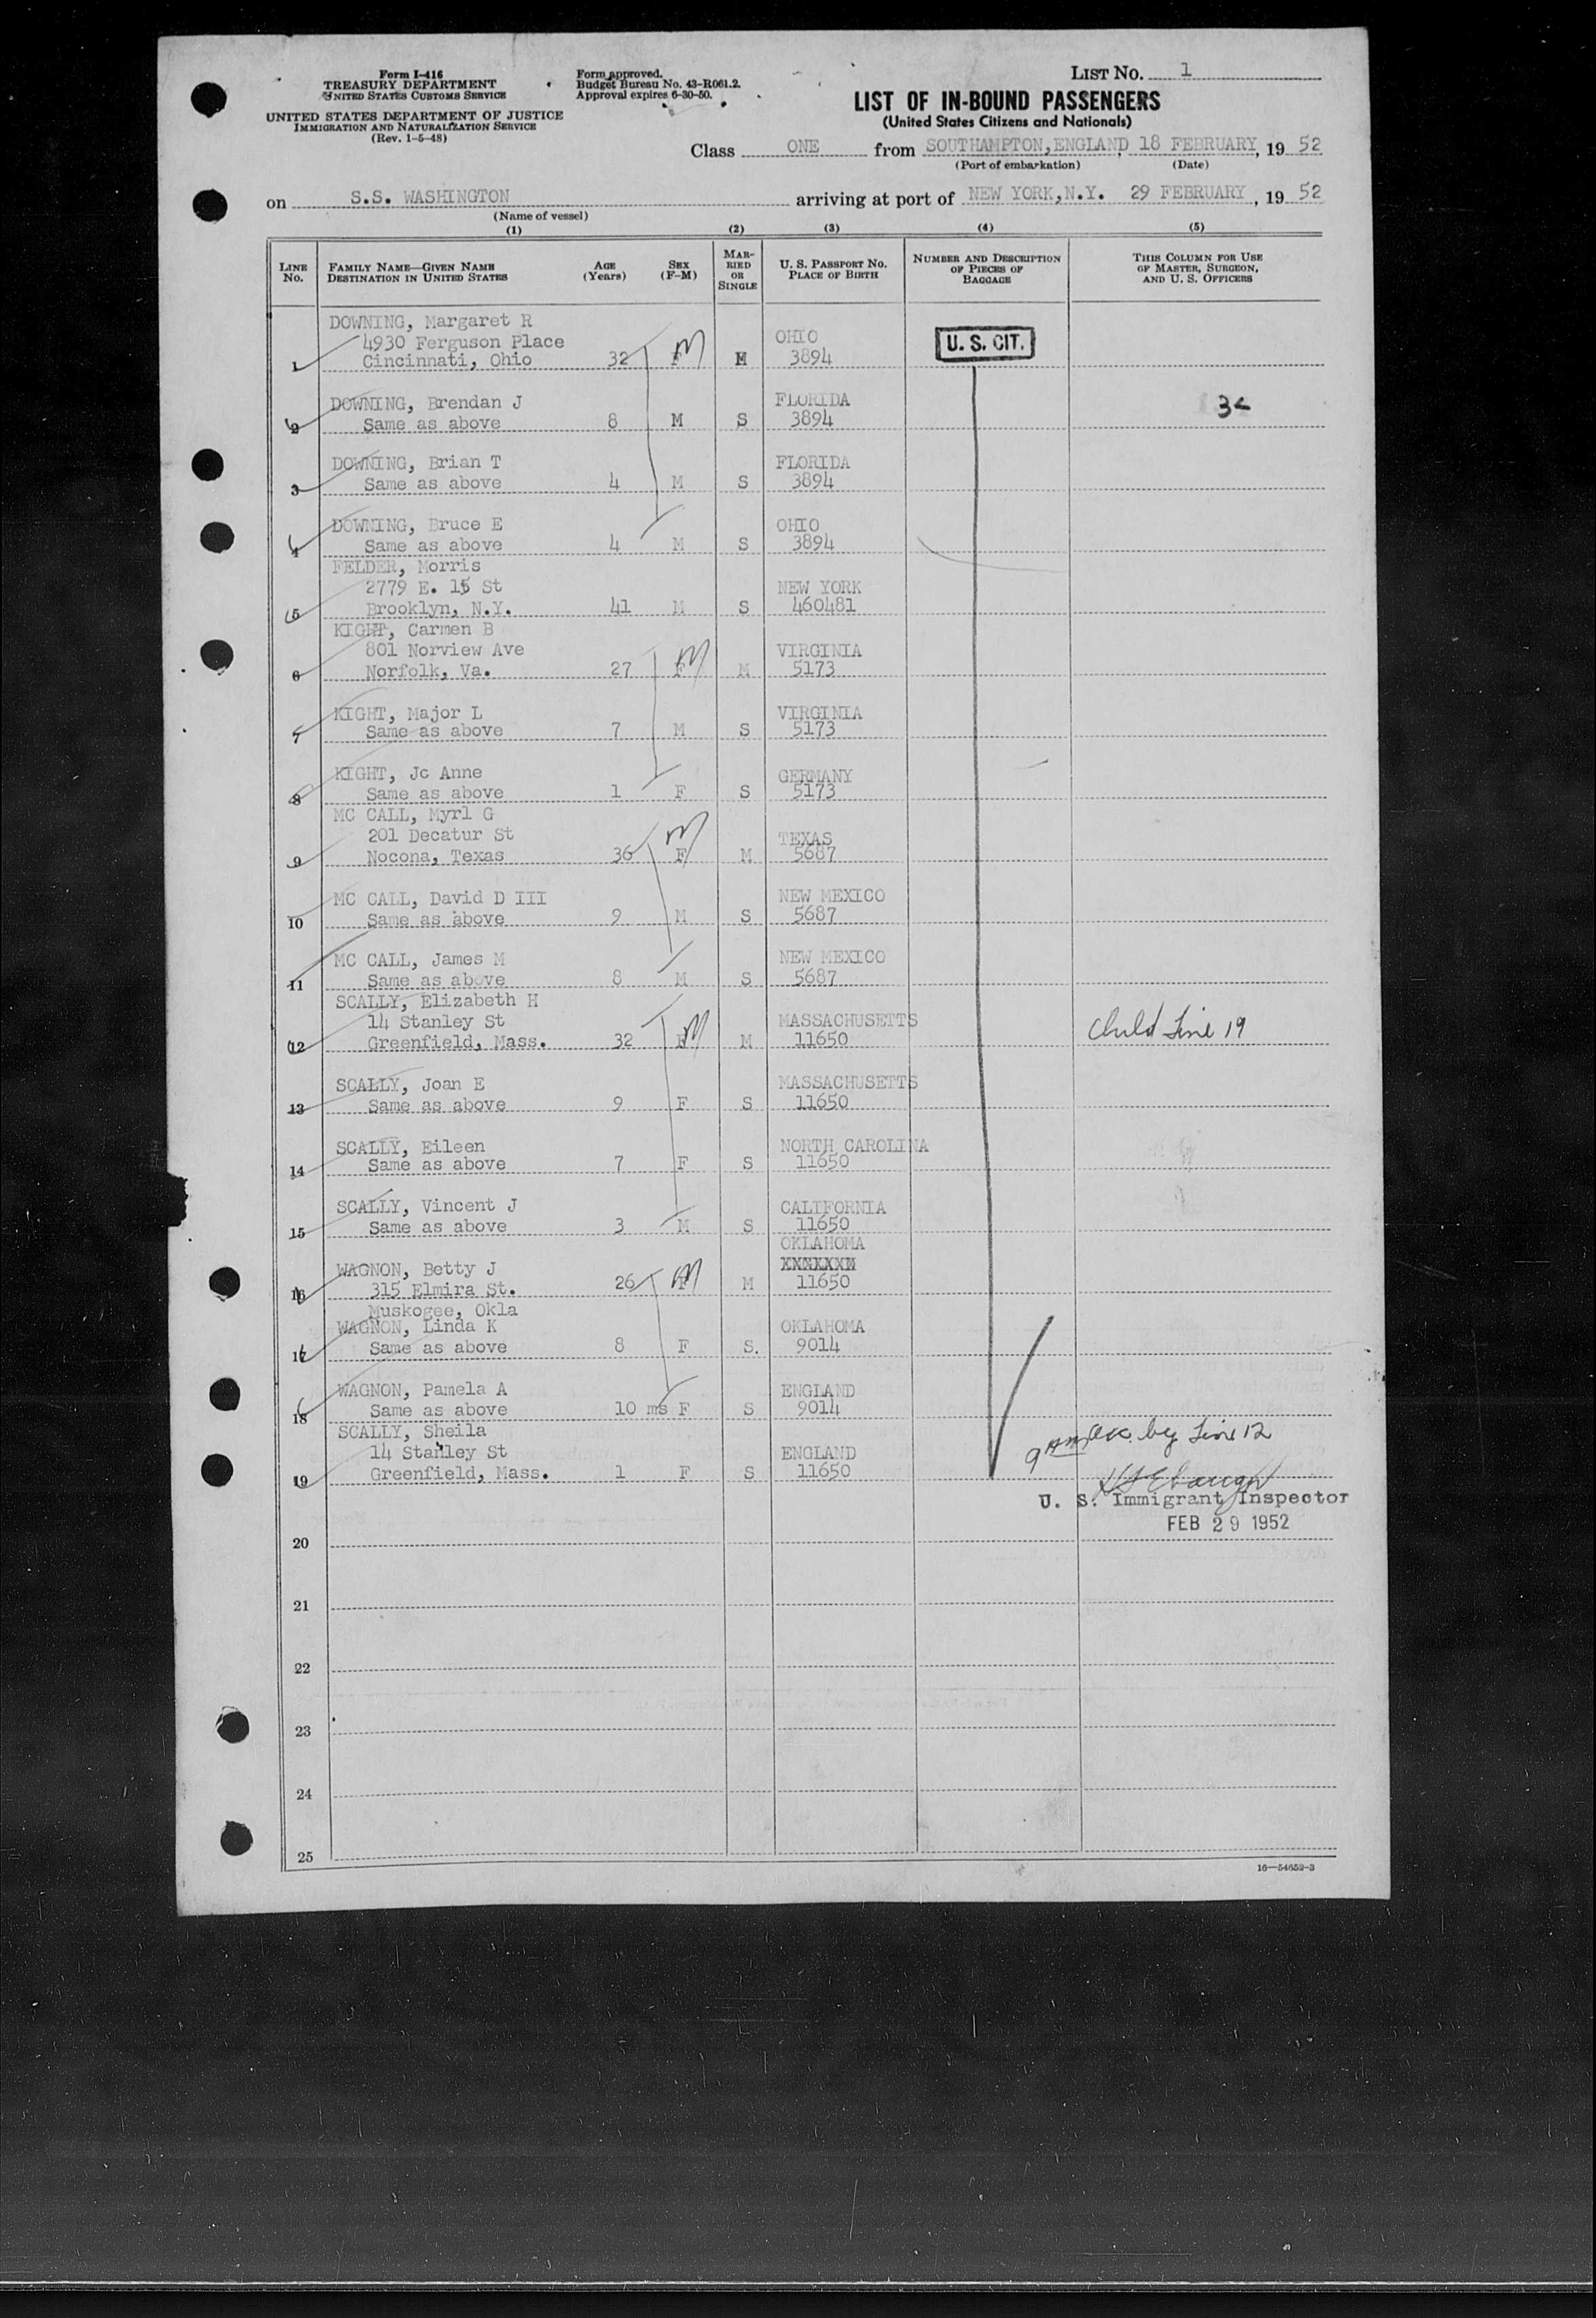 Form I-416
TREASURY DEPARTMENT
UNITED STATES CUSTOMS SERVICE
UNITED STATES DEPARTMENT OF JUSTICE
IMMIGRATION AND NATURALIZATION SERVICE
(Rev. 1-5-48)
Form approved.
Budget Bureau No. 43-R061.2.
Approval expires 6-30-50.
LIST NO. 1
LIST OF IN-BOUND PASSENGERS
(United States Citizens and Nationals)
Class ONE from SOUTHAMPTON, ENGLAND, 18 FEBRUARY, 19 52
(Port of embarkation) (Date)
on S.S. WASHINGTON arriving at port of NEW YORK, N.Y. 29 FEBRUARY, 19 52
(Name of vessel)
(1) (2) (3) (4) (5)
LINE NO. FAMILY NAME—GIVEN NAME DESTINATION IN UNITED STATES AGE (Years) SEX (F-M) MARRIED OR SINGLE U. S. PASSPORT NO. PLACE OF BIRTH NUMBER AND DESCRIPTION OF PIECES OF BAGGAGE THIS COLUMN FOR USE OF MASTER, SURGEON, AND U. S. OFFICERS
DOWNING, Margaret R
4930 Ferguson Place OHIO U. S. CIT.
1 Cincinnati, Ohio 32 F M M 3894
DOWNING, Brendan J FLORIDA
2 Same as above 8 M S 3894
DOWNING, Brian T FLORIDA
3 Same as above 4 M S 3894
DOWNING, Bruce E OHIO
4 Same as above 4 M S 3894
FELDER, Morris
2779 E. 15 St NEW YORK
5 Brooklyn, N.Y. 41 M S 460481
KIGHT, Carmen B
801 Norview Ave VIRGINIA
6 Norfolk, Va. 27 F M M 5173
KIGHT, Major L VIRGINIA
7 Same as above 7 M S 5173
KIGHT, Jc Anne GERMANY
8 Same as above 1 F S 5173
MC CALL, Myrl G
201 Decatur St TEXAS
9 Nocona, Texas 36 F M M 5687
MC CALL, David D III NEW MEXICO
10 Same as above 9 M S 5687
MC CALL, James M NEW MEXICO
11 Same as above 8 M S 5687
SCALLY, Elizabeth H
14 Stanley St MASSACHUSETTS Child Line 19
12 Greenfield, Mass. 32 F M M 11650
SCALLY, Joan E MASSACHUSETTS
13 Same as above 9 F S 11650
SCALLY, Eileen NORTH CAROLINA
14 Same as above 7 F S 11650
SCALLY, Vincent J CALIFORNIA
15 Same as above 3 M S 11650
OKLAHOMA
WAGNON, Betty J XXXXXXX
16 315 Elmira St. 26 F M M 11650
Muskogee, Okla
WAGNON, Linda K OKLAHOMA
17 Same as above 8 F S. 9014
WAGNON, Pamela A ENGLAND
18 Same as above 10 ms F S 9014
SCALLY, Sheila by Line 12
14 Stanley St ENGLAND
19 Greenfield, Mass. 1 F S 11650
U. S. Immigrant Inspector
FEB 29 1952
20
21
22
23
24
25
16—54652-3